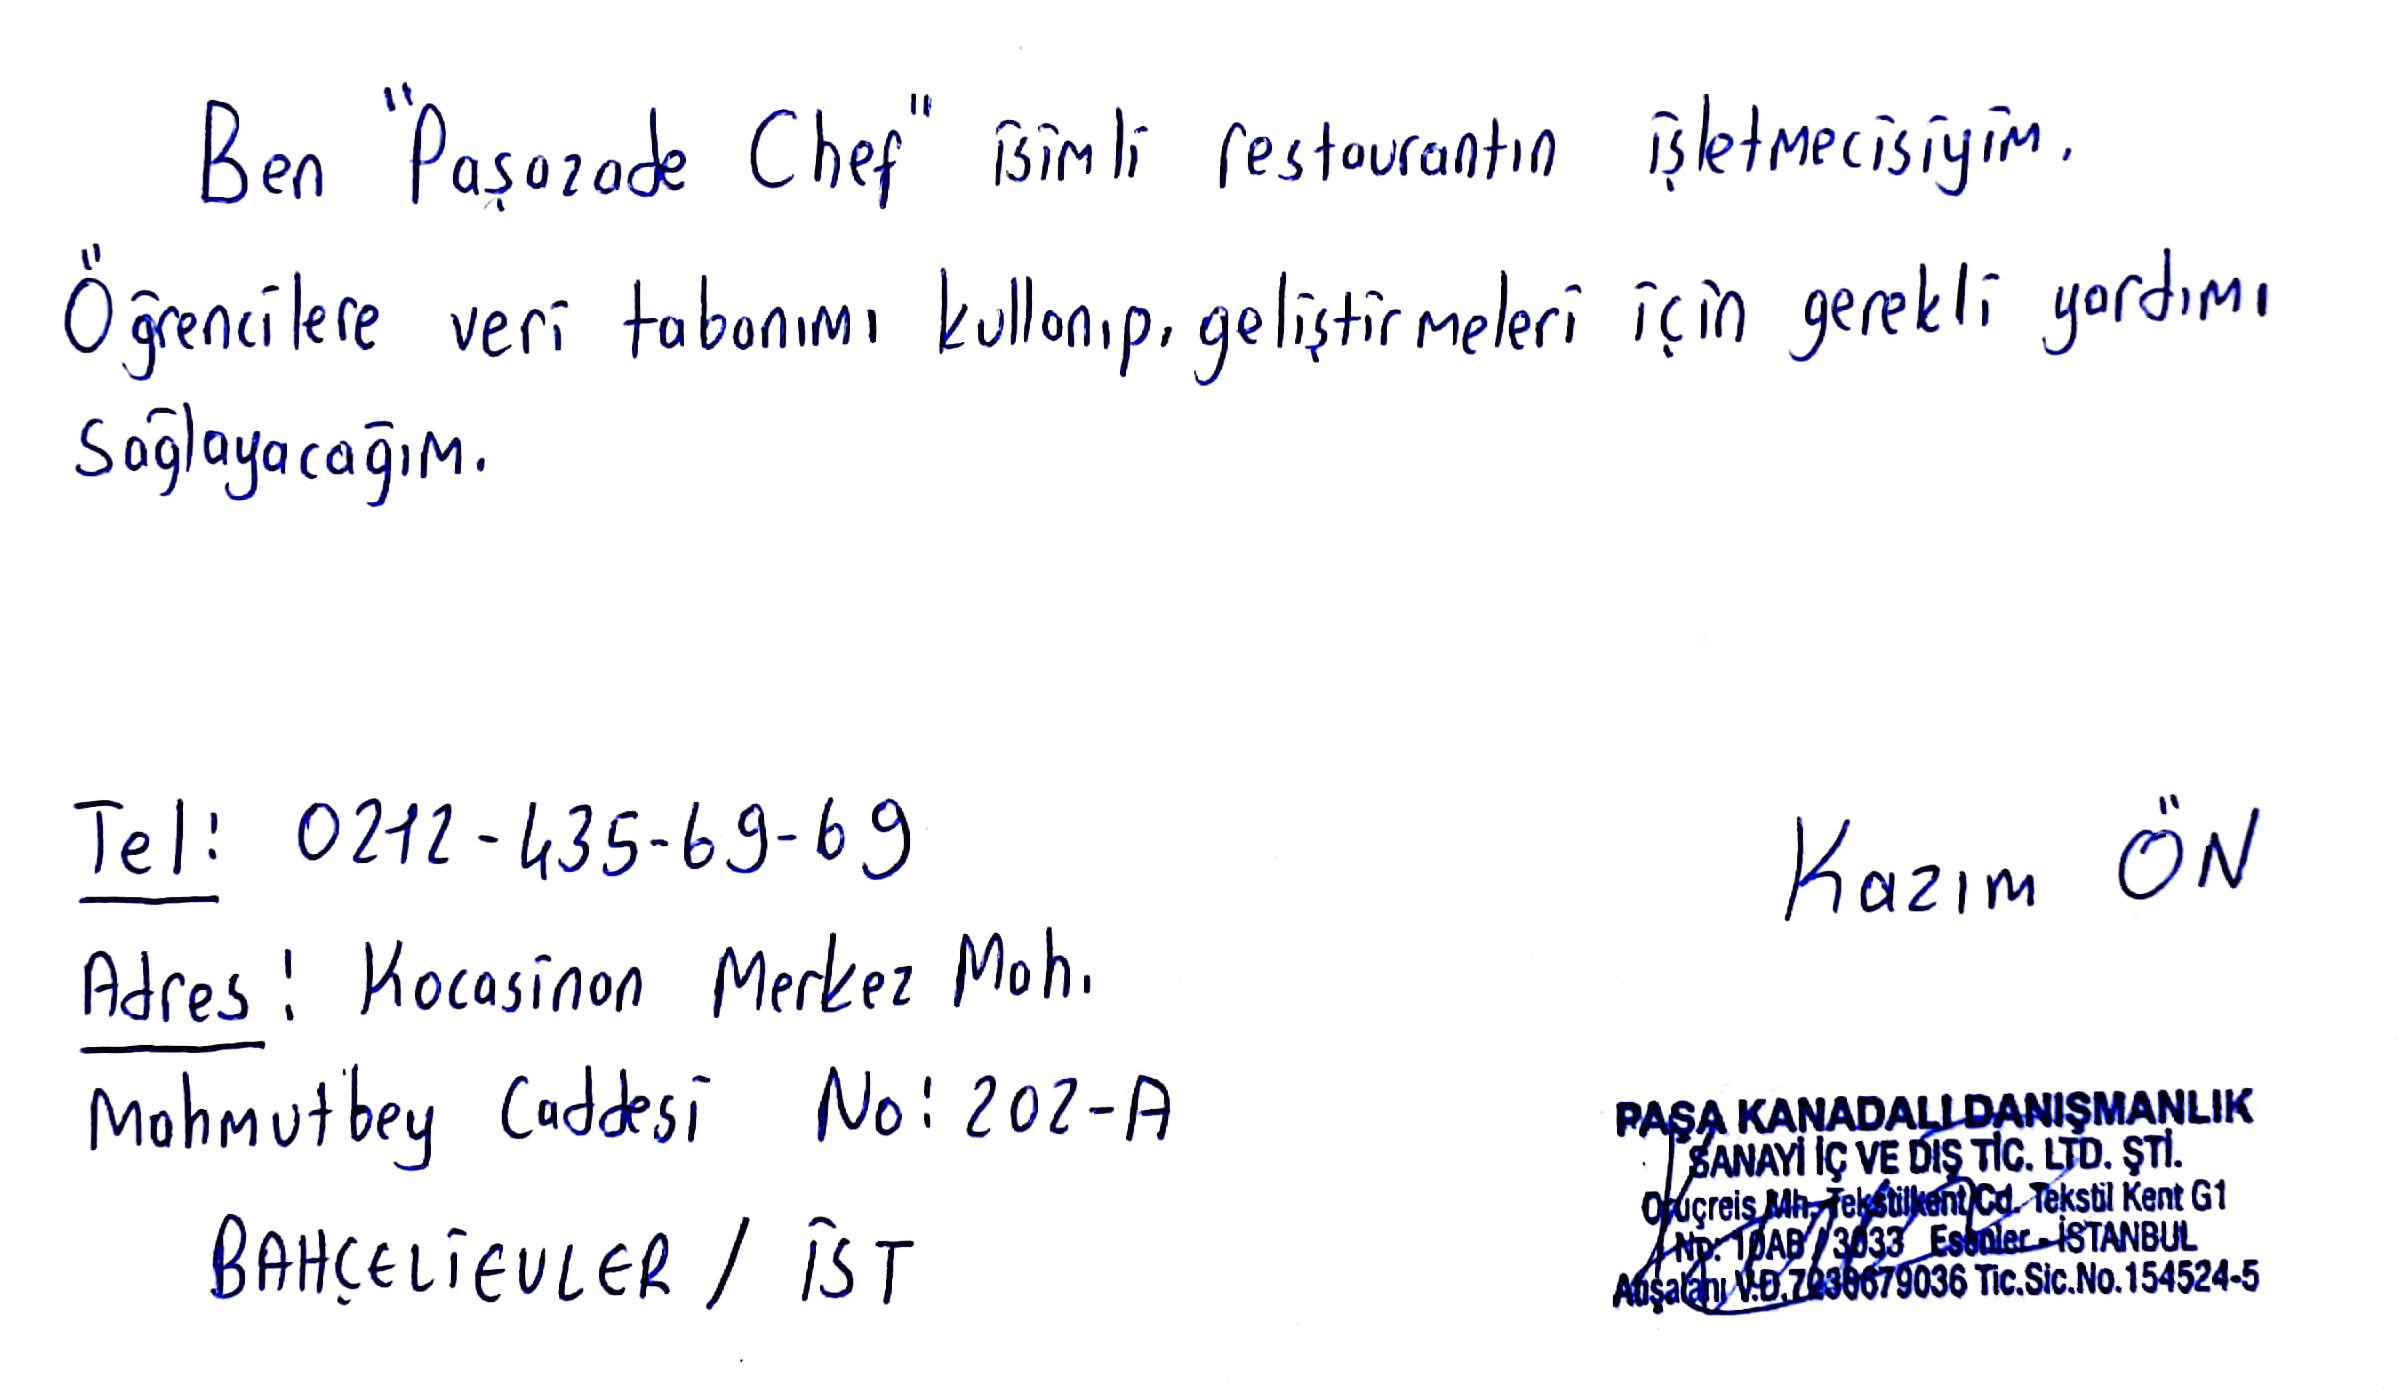 Ben "Paşazade Chef" isimli restaurantın işletmecisiyim.
Öğrencilere veri tabanımı kullanıp, geliştirmeleri için gerekli yardımı
sağlayacağım.
Tel: 0212-435-69-69
Kazım ÖN
Adres: Kocasinan Merkez Mah.
Mahmutbey Caddesi No: 202-A
BAHÇELİEVLER / İST
PAŞA KANADALI DANIŞMANLIK
SANAYİ İÇ VE DIŞ TİC. LTD. ŞTİ.
Oruçreis Mh. Tekstilkent Cd. Tekstil Kent G1
No: 10AB / 3033 Esenler - İSTANBUL
Atışalanı V.D. Tic.Sic.No.154524-5